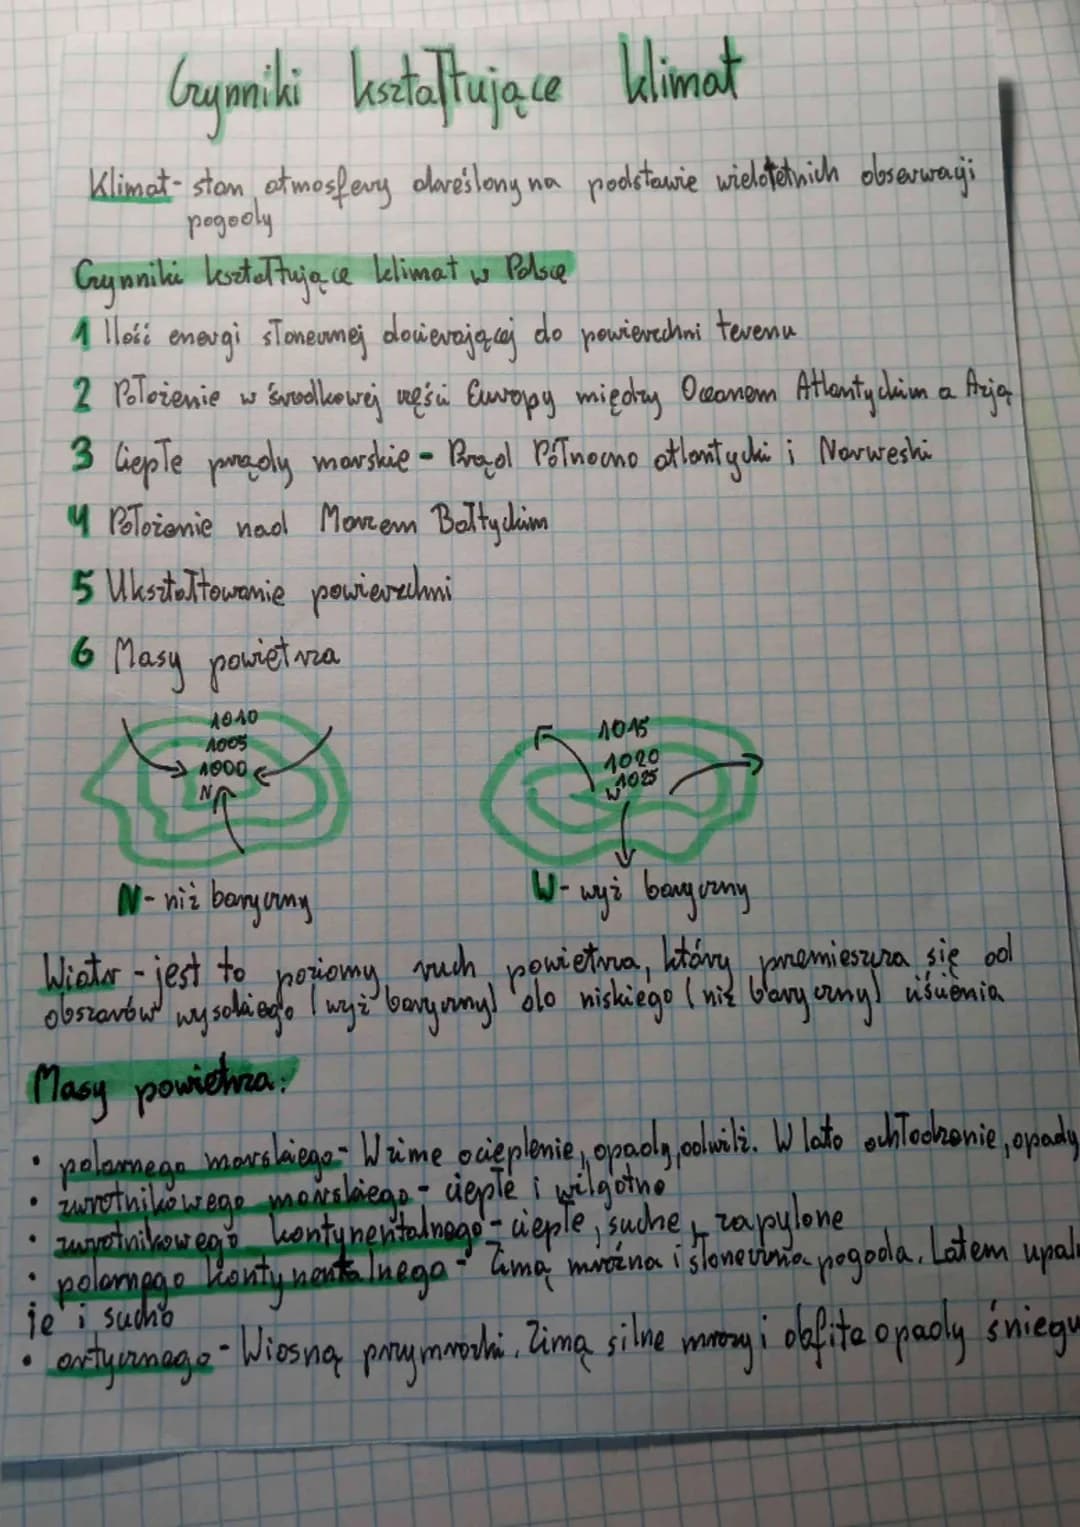 Czynniki kształtujące klimat
Klimat- stan atmosfery określony na podstawie wieloletnich obserwacji
pogody
Czynniki kształtujące klimat w Polsce
1 Ilość energi słonecznej docierającej do powierzchni terenu
2 Położenie w środkowej części Europy między Oceanem Atlantyckim a Azją
3 Ciepłe prądy morskie - Prąd Północno atlantycki i Norweski
4 Położenie nad Morzem Bałtyckim
5 Ukształtowanie powierzchni
6 Masy powietrza
1010
1005
1000
N
1015
1020
1025
W
N- niż baryczny
W- wyż baryczny
Wiatr - jest to poziomy ruch powietrza, który przemieszcza się od
obszarów wysokiego (wyż baryczny) do niskiego (niż baryczny) ciśnienia
Masy powietrza:
• polarnego morskiego- W zime ocieplenie, opady, odwilż. W lato ochłodzenie, opady
• zwrotnikowego morskiego - ciepłe i wilgotne
• zwrotnikowego kontynentalnego - ciepłe, suche, zapylone
• polarnego kontynentalnego - Zimą mroźna i słoneczna pogoda. Latem upal
je i sucho
• artycznego - Wiosną przymrozki. Zimą silne mrozy i obfite opady śniegu